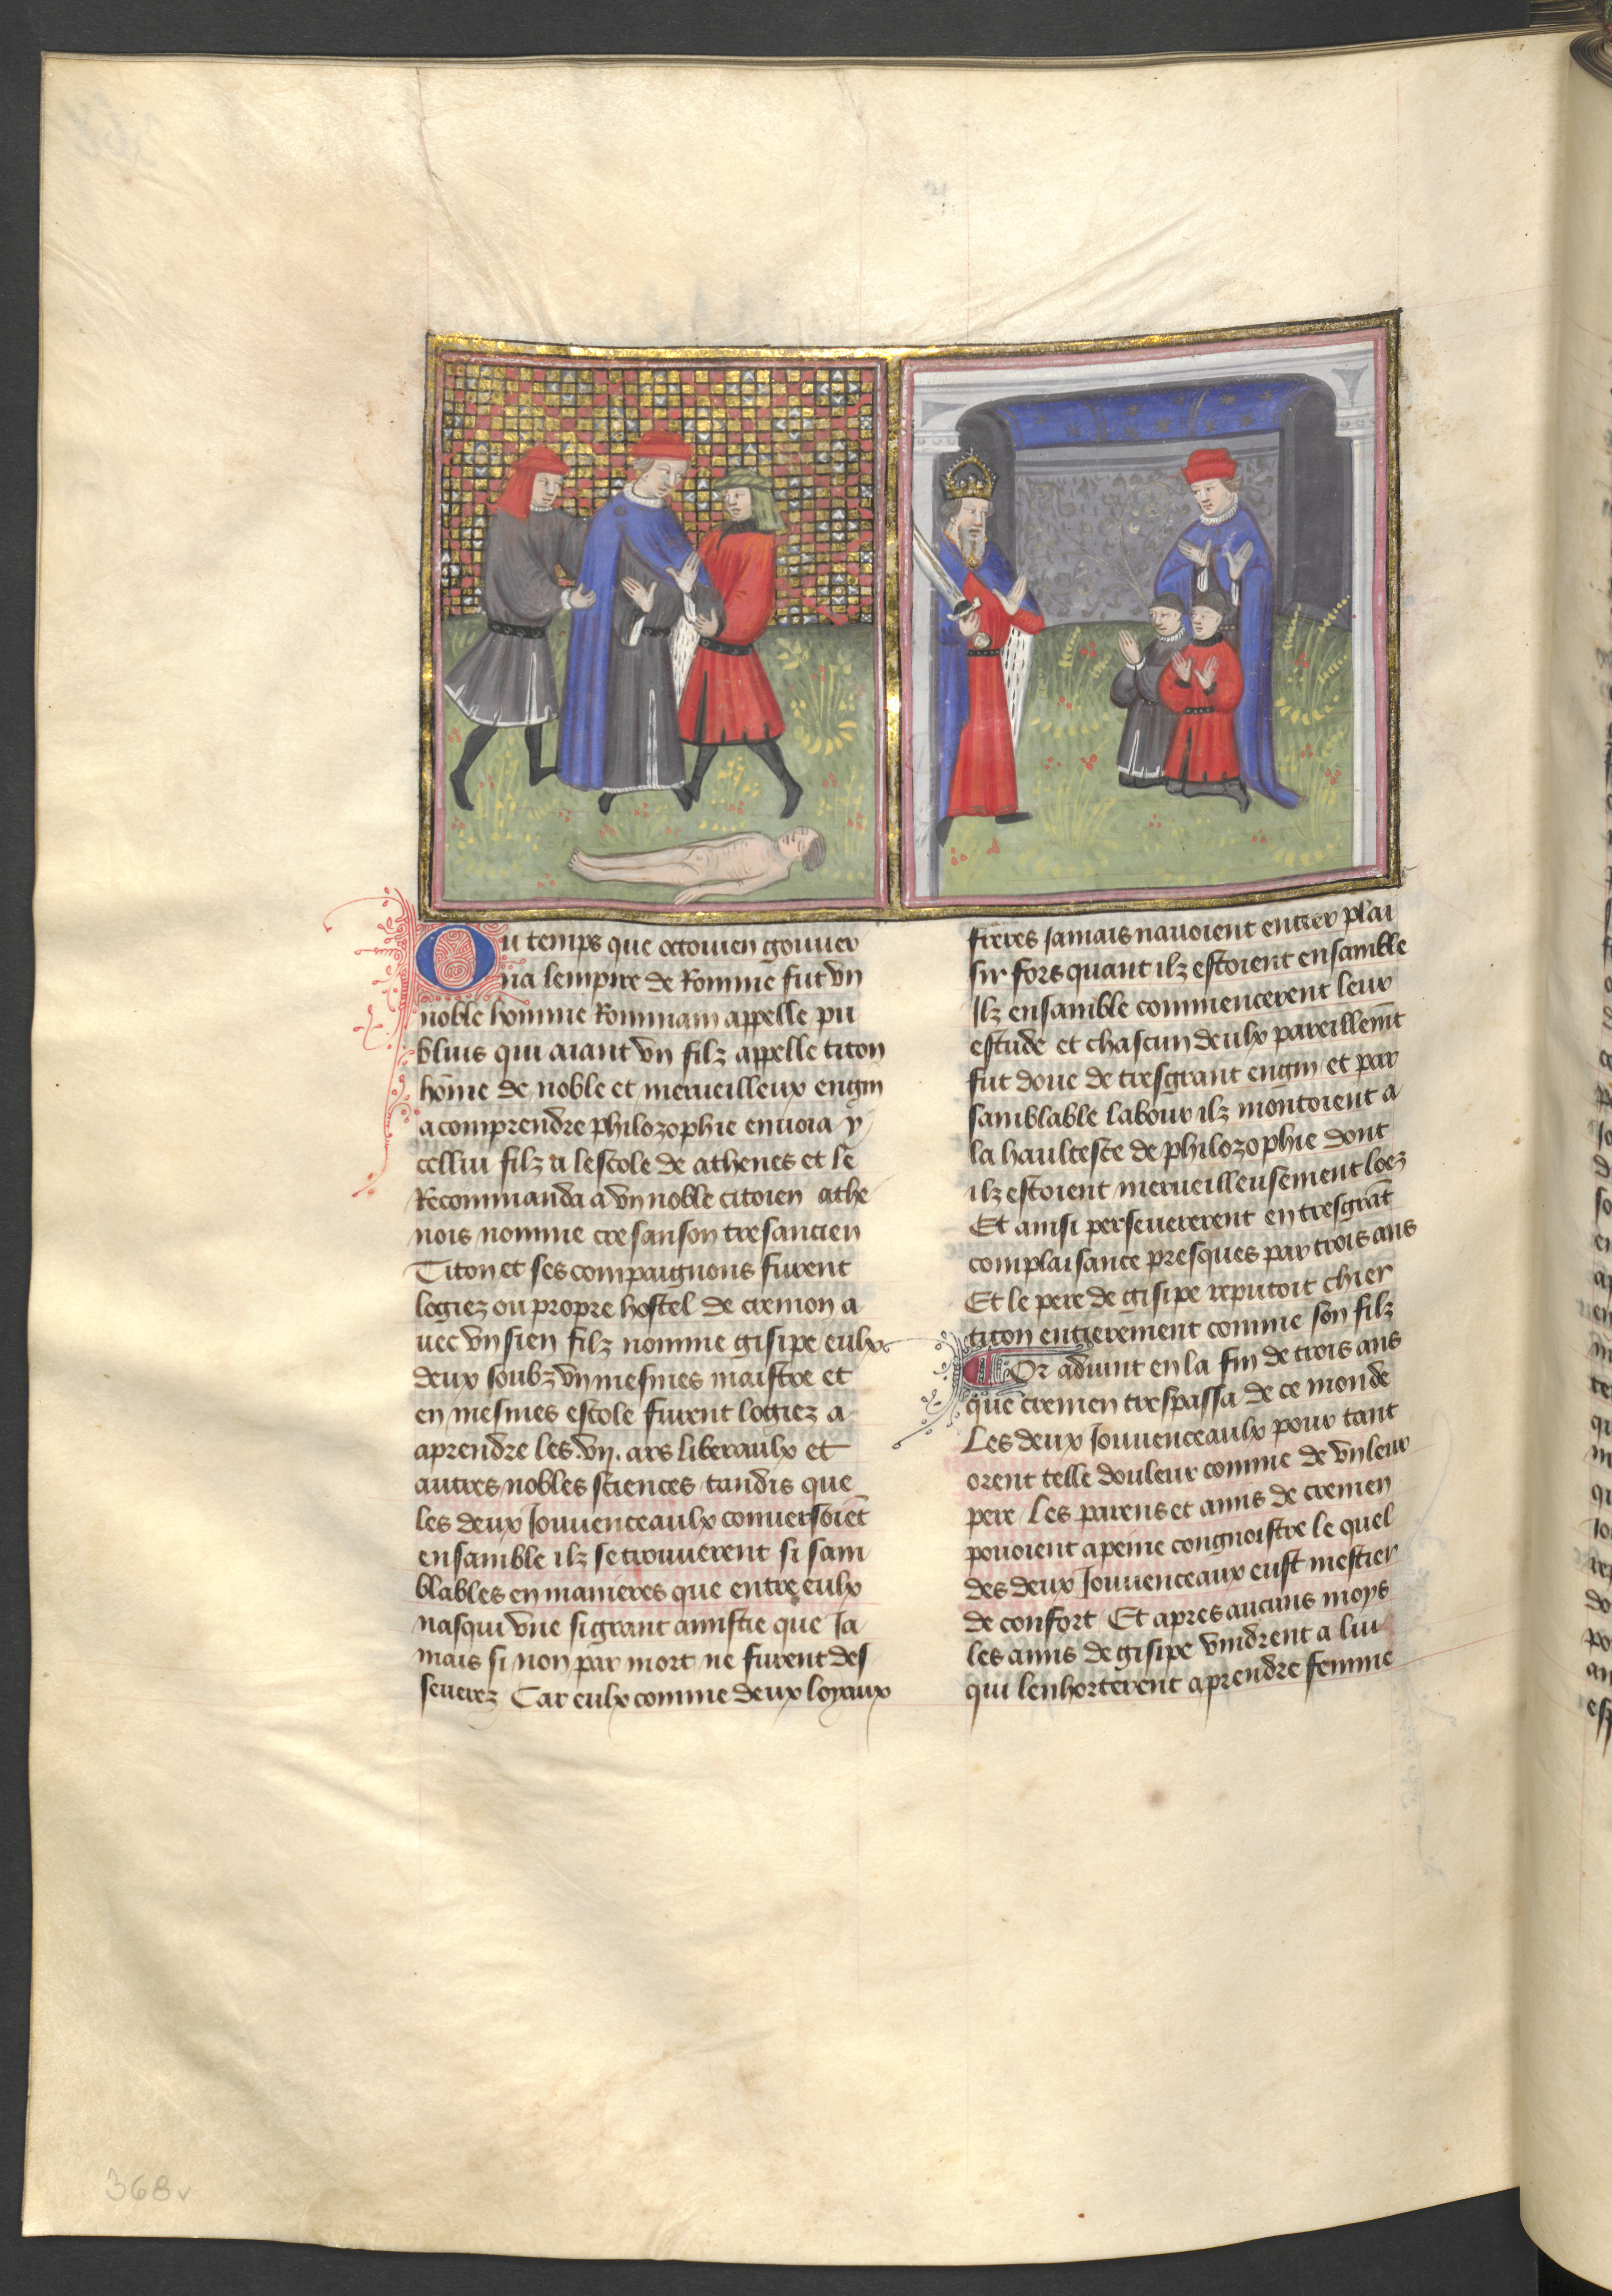 Ou temps que octouien gouuer
na lempire de Romme fut vn
noble homme Rommain appelle pu
blius qui aiant vn filz appelle titon
hōme de noble et merueilleux engin
a comprendre philozophie enuoia y
cellui filz a lescole de athenes et le
Recommanda a vn noble citoien athe
nois nomme cresanson tresancien
Titon et ses compaignons furent
logiez ou propre hostel de cremon a
uec vn sien filz nomme gisipe eulx
deux soubz vn mesmes maistre et
en mesmes escole furent logiez a
aprendre les .vij. ars liberaulx et
autres nobles sciences tandis que
les deux Jouuenceaulx conuersoiēt
ensamble ilz se trouuerent si sam
blables en manieres que entre eulx
nasqui vne si grant amistie que Ja
mais si non par mort ne furent des
seuerez Car eulx comme deux loyaux
freres Jamais nauoient entier plai
sir fors quant ilz estoient ensamble
Ilz ensamble commencerent leur
estude et chascun deulx pareillemēt
fut doue de tresgrant engin et par
samblable labour ilz montoient a
la haultesce de philozophie dont
ilz estoient merueilleusement loez
Et ainsi perseuererent en tresgrāt
complaisance presques par trois ans
Et le pere de gisipe reputoit chier
titon entierement comme son filz
Or aduint en la fin de trois ans
que cremen trespassa de ce monde
Les deux Jouuenceaulx pour tant
orent telle douleur comme de vn leur
pere Les parens et amis de cremen
pouoient a peine congnoistre le quel
des deux Jouuenceaux eust mestier
de confort Et apres aucuns moys
les amis de gisipe vindrent a lui
qui lenhorterent a prendre femme
368v